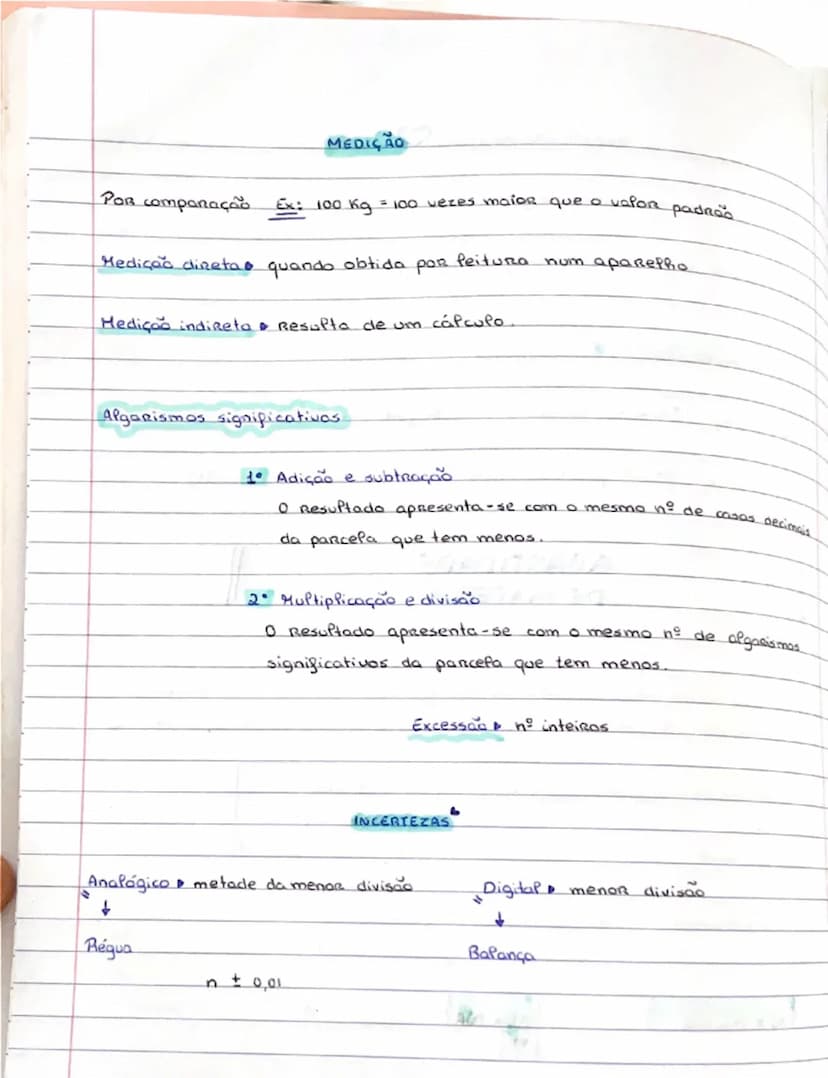 MEDIÇÃO
Por comparação Ex: 100 Kg = 100 vezes maior que o valor padrão
Medição direta quando obtida por leitura num aparelho
Medição indireta resulta de um cálculo.
Algarismos significativos
1º Adição e subtração
O resultado apresenta-se com o mesmo nº de casas decimais
da parcela que tem menos.
2º Multiplicação e divisão
O resultado apresenta-se com o mesmo nº de algarismos
significativos da parcela que tem menos.
Excessão nº inteiros
INCERTEZAS
Analógico metade da menor divisão Digital menor divisão
↓ ↓
Régua Balança
n ± 0,01